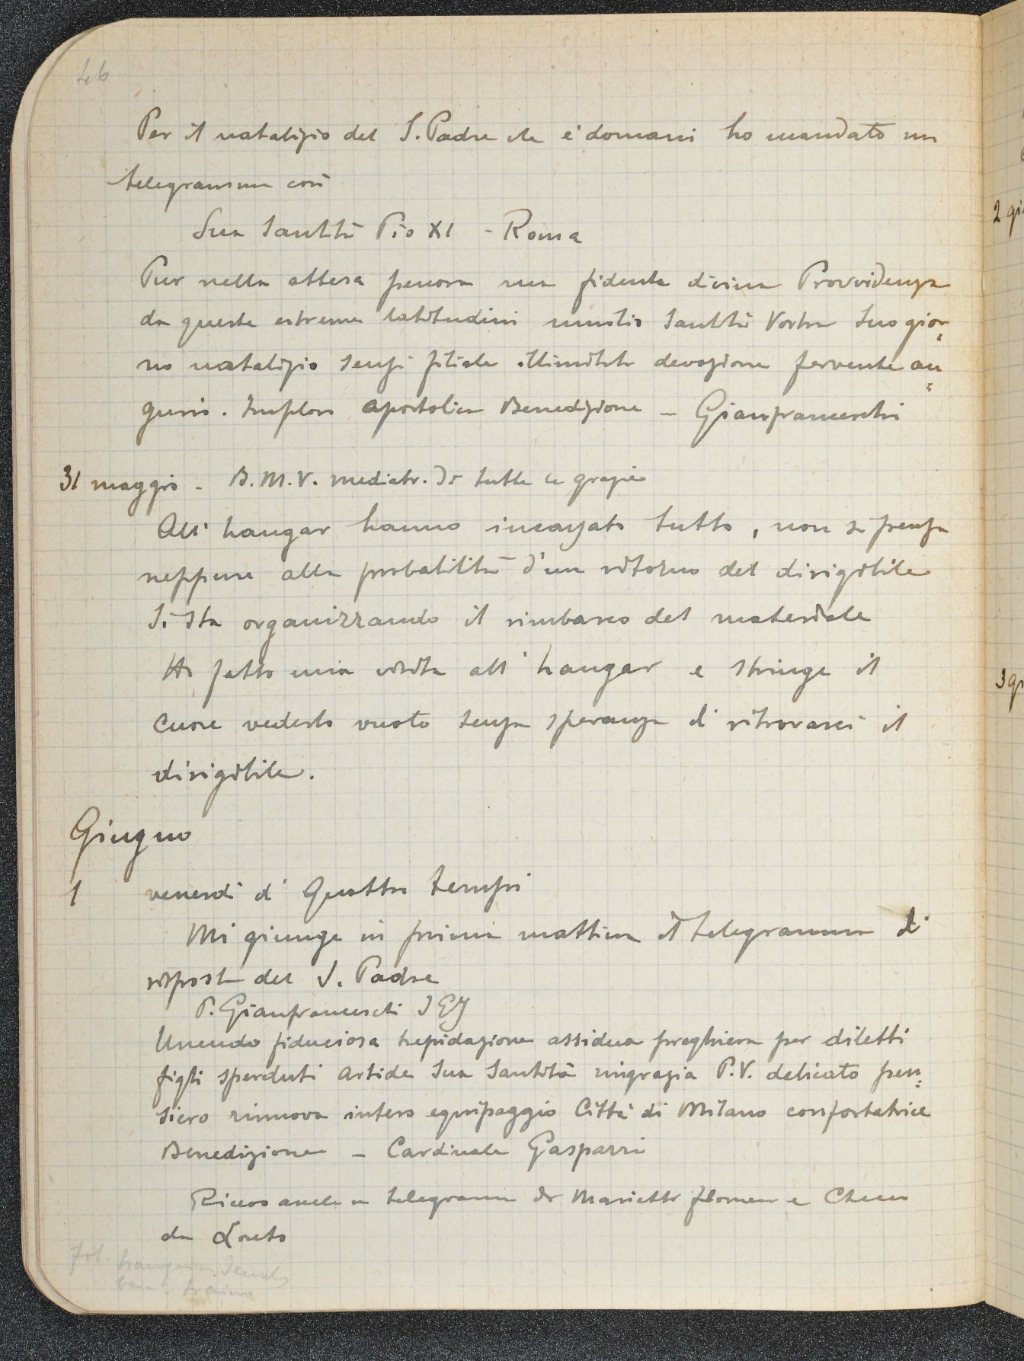 46
Per il natalizio del S. Padre che è domani ho mandato un
telegramma così
Sua Santità Pio XI - Roma
Pur nella attesa penosa ma fidente divina Provvidenza
da queste estreme latitudini umilio Santità Vostra Suo gior=
no natalizio sensi filiale illimitata devozione fervente au=
guri. Imploro apostolica Benedizione - Gianfranceschi
31 maggio - B.M.V. mediatr. di tutte le grazie
All' hangar hanno incassato tutto, non si pensa
neppure alla probabilità d'un ritorno del dirigibile
Si sta organizzando il rimbarco del materiale
Ho fatto una visita all' hangar e stringe il
cuore vederlo vuoto senza speranza di ritrovarci il
dirigibile.
Giugno
1 venerdì di Quattro tempi
Mi giunge in prima mattina il telegramma di
risposta del S. Padre
P. Gianfranceschi
Unendo fiduciosa trepidazione assidua preghiera per diletti
figli sperduti artide Sua Santità ringrazia P.V. delicato pen=
siero rinnova intero equipaggio Città di Milano confortatrice
Benedizione - Cardinale Gasparri
Ricevo anche un telegramma di Marietta e
da Loreto